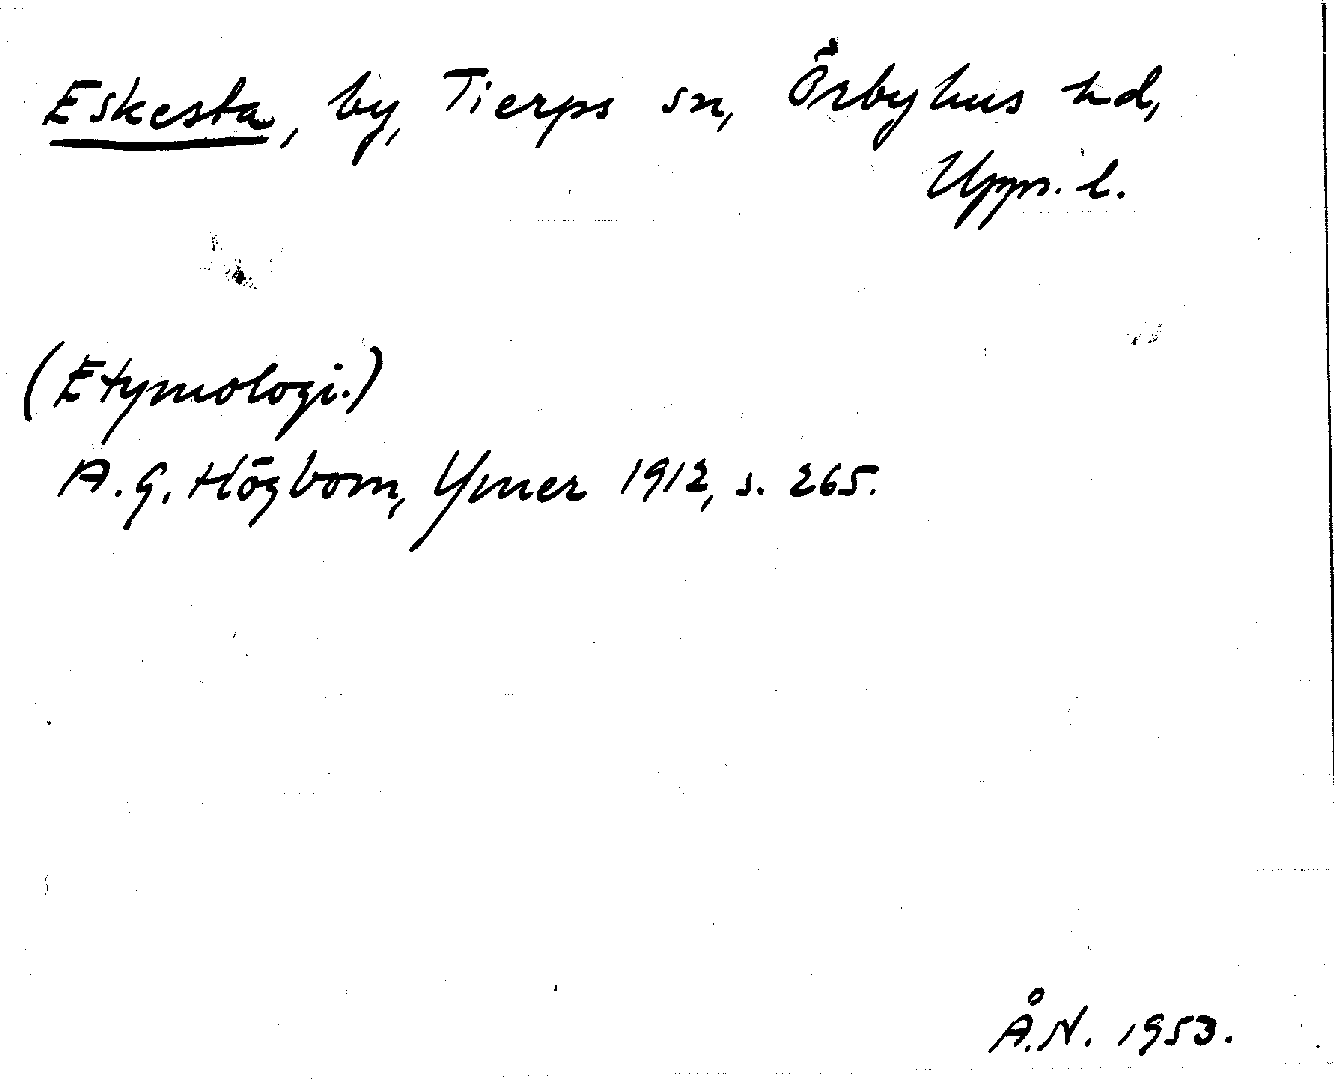 Eskesta, by, Tierps sn, Örbyhus hd,
Upps. l.
(Etymologi.)
A. G. Högbom, Ymer 1912, s. 265.
Å.N. 1953.